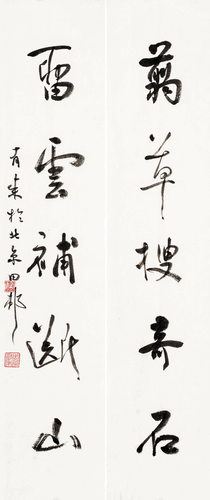 翦草搜奇石
畱雲補斷山
有来於北京田邨